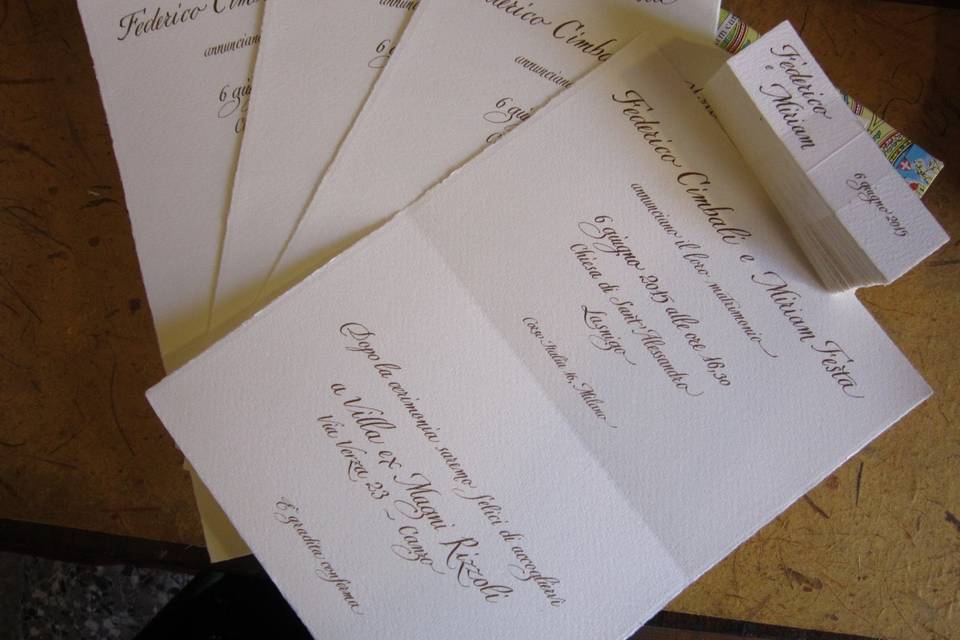 Federico Cimbali
annunciano
6 giu
annunciano
6 giug
Federico Cimbali e Miriam Festa
annunciano il loro matrimonio
6 giugno 2015 alle ore 16,30
Chiesa di Sant'Alessandro
Lasnigo
Corso Italia 16, Milano
Dopo la cerimonia saremo felici di accogliervi
a Villa ex Magni Rizzoli
Via Verza 23 ~ Canzo
È gradita conferma
Federico
e Miriam
6 giugno 2015